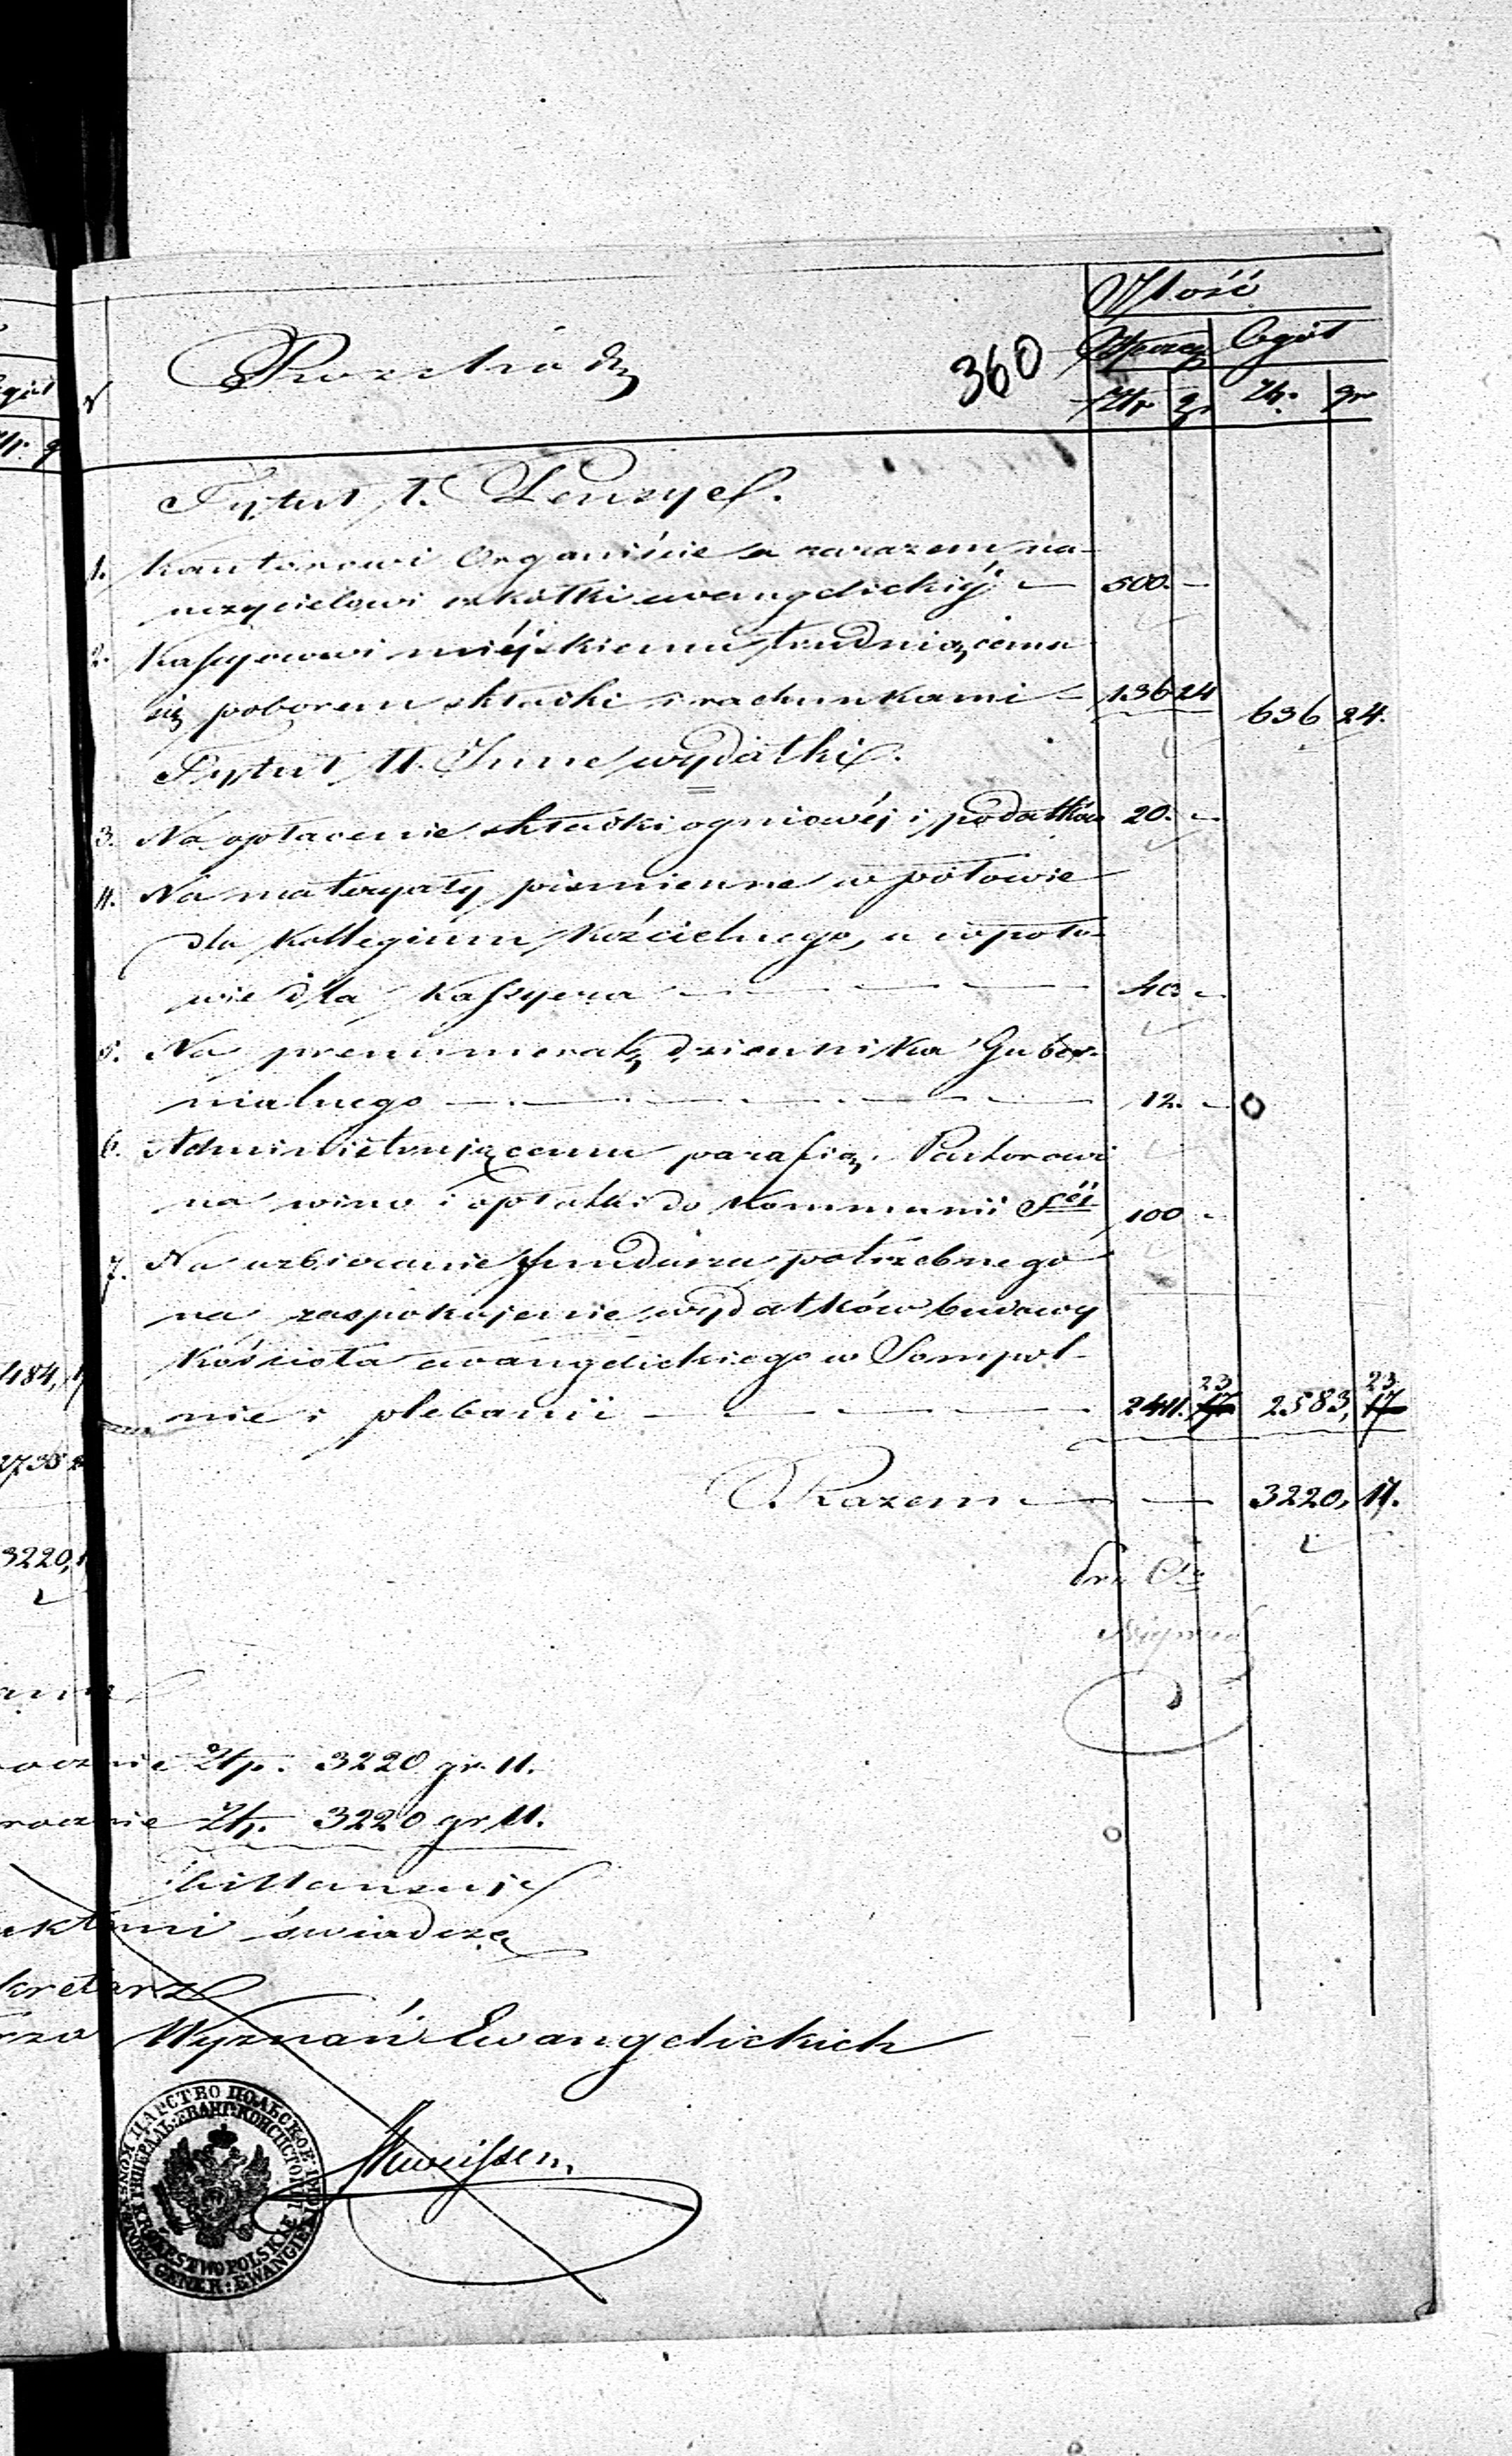 Ilość
360
Szczeg. Ogół
N Rozchody
Złp gr Zł. gr
Tytuł I. Pensye.
1. Kantorowi Organiście a zarazem na-
uczycielowi szkółki ewangelickiéj — 500. —
2. Kassyerowi miéjskiemu trudniącemu
się poborem składki i rachunkami — 136 24 636 24.
Tytuł II. Inne wydatki.
3. Na opłacenie składki ogniowéj i podatków 20. —
4. Na materyały piśmienne w połowie
dla Kollegium Kościelnego, a w poło-
wie dla Kassyera — 40 —
5. Na prenumeratę dziennika Guber-
nialnego — 12. —
6. Administrującemu parafią Pastorowi
na wino i opłatki do Kommunii Sᵉⁱ 100 —
7. Na uzbieranie funduszu potrzebnego
na zaspokojenie wydatków budowy
Kościoła ewangelickiego w Sompol-
23 23
nie i plebanii — 2411. 17 2583, 17
484, 1
2736 2
Razem — — 3220, 17.
3220, 1
ocznie Złp. 3220 gr. 11.
rocznie Zł. 3220 gr 11.
aktami świadczę
kretarz
Wyznań Ewangelickich
ЦАРСТВО ПОЛЬСКОЕ
ГЕНЕРАЛЬ. ЕВАНГ. КОНСИСТОР
KRÓLESTWO POLSKIE
KONSYSTORZ GENER: EWANGIEL